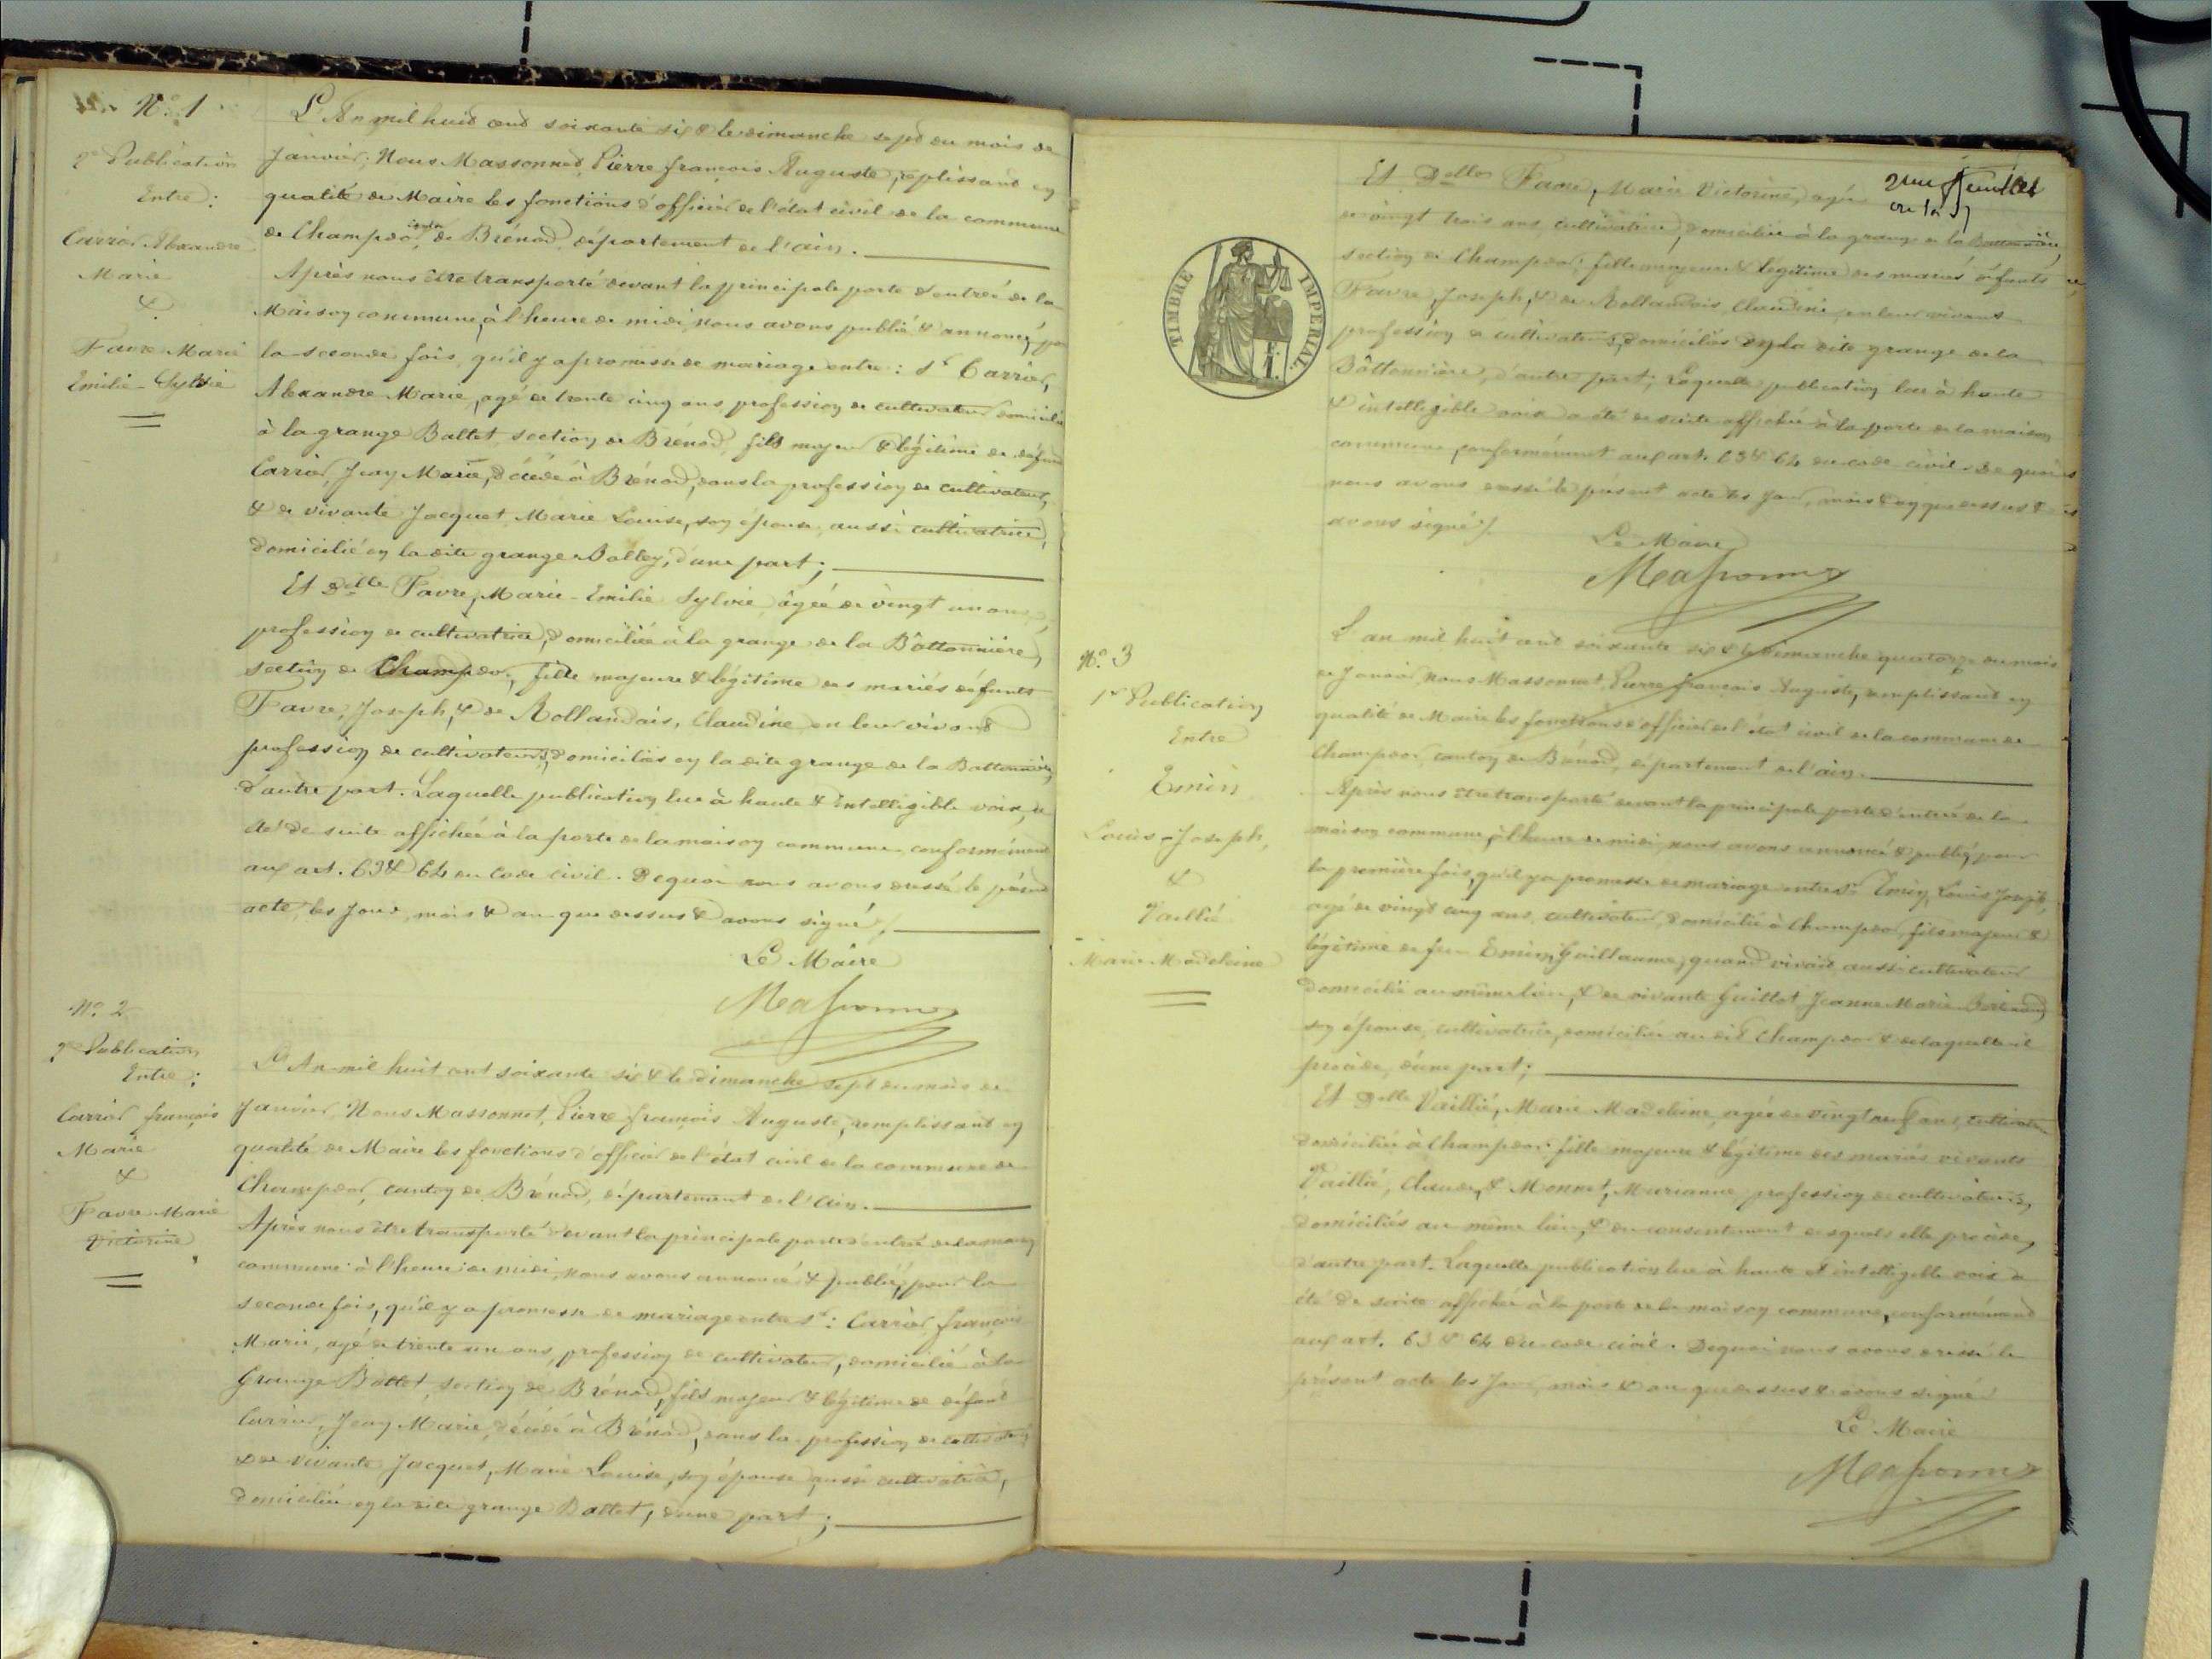 N.° 1
2e Publication
Entre :
Carrier Alexandre
Marie
&
Favre Marie
Emilie - Sylvie
L'An mil huit cent soixante six & le dimanche sept du mois de
Janvier; Nous Massonnet, Pierre françois Auguste, replissant en
qualité de Maire les fonctions d'officier de l'état civil de la commune
de Champdor, canton de Brénod, département de l'ain.
Après nous être transporté devant la principale porte d'entrée de la
Maison commune, à l'heure de midi, nous avons publié & annoncé, pour
la seconde fois, qu'il y a promesse de mariage entre : Sr Carrier,
Alexandre Marie, agé de trente cinq ans profession de cultivateur domicilié
à la grange Ballet, section de Brénod, fils majeur & légitime de défunt
Carrier, Jean Marie, décédé à Brénod, dans la profession de cultivateur,
& de vivante Jacquet, Marie Louise, son épouse, aussi cultivatrice,
domicilié en la dite grange Balley, d'une part ;
Et Delle Favre, Marie-Emilie Sylvie, âgée de vingt un ans,
profession de cultivatrice, domiciliée à la grange de la Bâttonnière,
section de Champdor, fille majeure & légitime des mariés défunts
Favre, Joseph, & de Rollandais, Claudine, en leur vivant
profession de cultivateurs, domiciliés en la dite grange de la Battonnière,
d'autre part. Laquelle publication lue à haute & intelligible voix, a
été de suite affichée à la porte de la maison commune, conformément
aux art. 63 & 64 du Code civil. De quoi nous avons dressé le présent
acte, les jour, mois & an que dessus & avons signé /.
Le Maire
Massonnet
N.° 2
2e Publication
Entre ;
Carrier françois
Marie
&
Favre Marie
Victorine
L'An mil huit cent soixante six & le dimanche sept du mois de
Janvier, Nous Massonnet, Pierre françois Auguste, remplissant en
qualité de Maire les fonctions d'officier de l'état civil de la commune de
Champdor, canton de Brénod, département de l'Ain.
Après nous être transporté devant la principale porte d'entrée de la maison
commune à l'heure de midi, nous avons annoncé & publié, pour la
seconde fois, qu'il y a promesse de mariage entre Sr : Carrier, françois
Marie, agé de trente un ans, profession de cultivateur, domicilié à la
Grange Ballet, section de Brénod, fils majeur & légitime de défunt
Carrier, Jean Marie, décédé à Brénod, dans la profession de cultivateur
& de vivante Jacquet, Marie Louise, son épouse, aussi cultivatrice,
domiciliée en la dite grange Ballet, d'une part ;
2me feuillet
Et Delle Favre, Marie Victorine, agée
de vingt trois ans, cultivatrice, domiciliée à la grange de la Battonnière,
section de Champdor, fille majeure & légitime des mariés défunts
Favre, Joseph, & de Rollandais, Claudine, en leur vivant
profession de cultivateurs, domiciliés en la dite grange de la
Bâttonnière, d'autre part; Laquelle publication lue à haute
& intelligible voix a été de suite affichée à la porte de la maison
commune, conformément aux art. 63 & 64 du code civil. De quoi
nous avons dressé le présent acte les jour, mois & an que dessus &
avons signé /.
Le Maire
Massonnet
TIMBRE IMPERIAL.
N.° 3
1re Publication
Entre
Emin
Louis-Joseph,
&
Vaillié
Marie Madeleine
L'an mil huit cent soixante six & le Dimanche quatorze du mois
de Janvier, Nous Massonnet, Pierre françois Auguste, remplissant en
qualité de Maire les fonctions d'officier de l'état civil de la commune de
Champdor, canton de Brénod, département de l'ain.
Après nous être transporté devant la principale porte d'entrée de la
maison commune, à l'heure de midi, nous avons annoncé & publié, pour
la première fois, qu'il y a promesse de mariage entre Sr Emin, Louis Joseph,
agé de vingt cinq ans, cultivateur, domicilié à Champdor, fils majeur &
légitime de feu Emin, Guillaume, quand vivait aussi cultivateur
domicilié au même lieu, & de vivante Guillot, Jeanne Marie
son épouse, cultivatrice, domiciliée au dit Champdor & de laquelle il
procède, d'une part ;
Et Delle Vaillié, Marie Madeleine, agée de vingt neuf ans, cultivatrice
domiciliée à Champdor, fille majeure & légitime des mariés vivants
Vaillié, Claude, & Monnet, Marianne, profession de cultivateurs,
domiciliés au même lieu, & du consentement desquels elle procède,
d'autre part. Laquelle publication lue à haute & intelligible voix a
été de suite affichée à la porte de la maison commune, conformément
aux art. 63 & 64 du code civil. De quoi nous avons dressé le
présent acte les jour, mois & an que dessus & avons signé
Le Maire
Massonnet